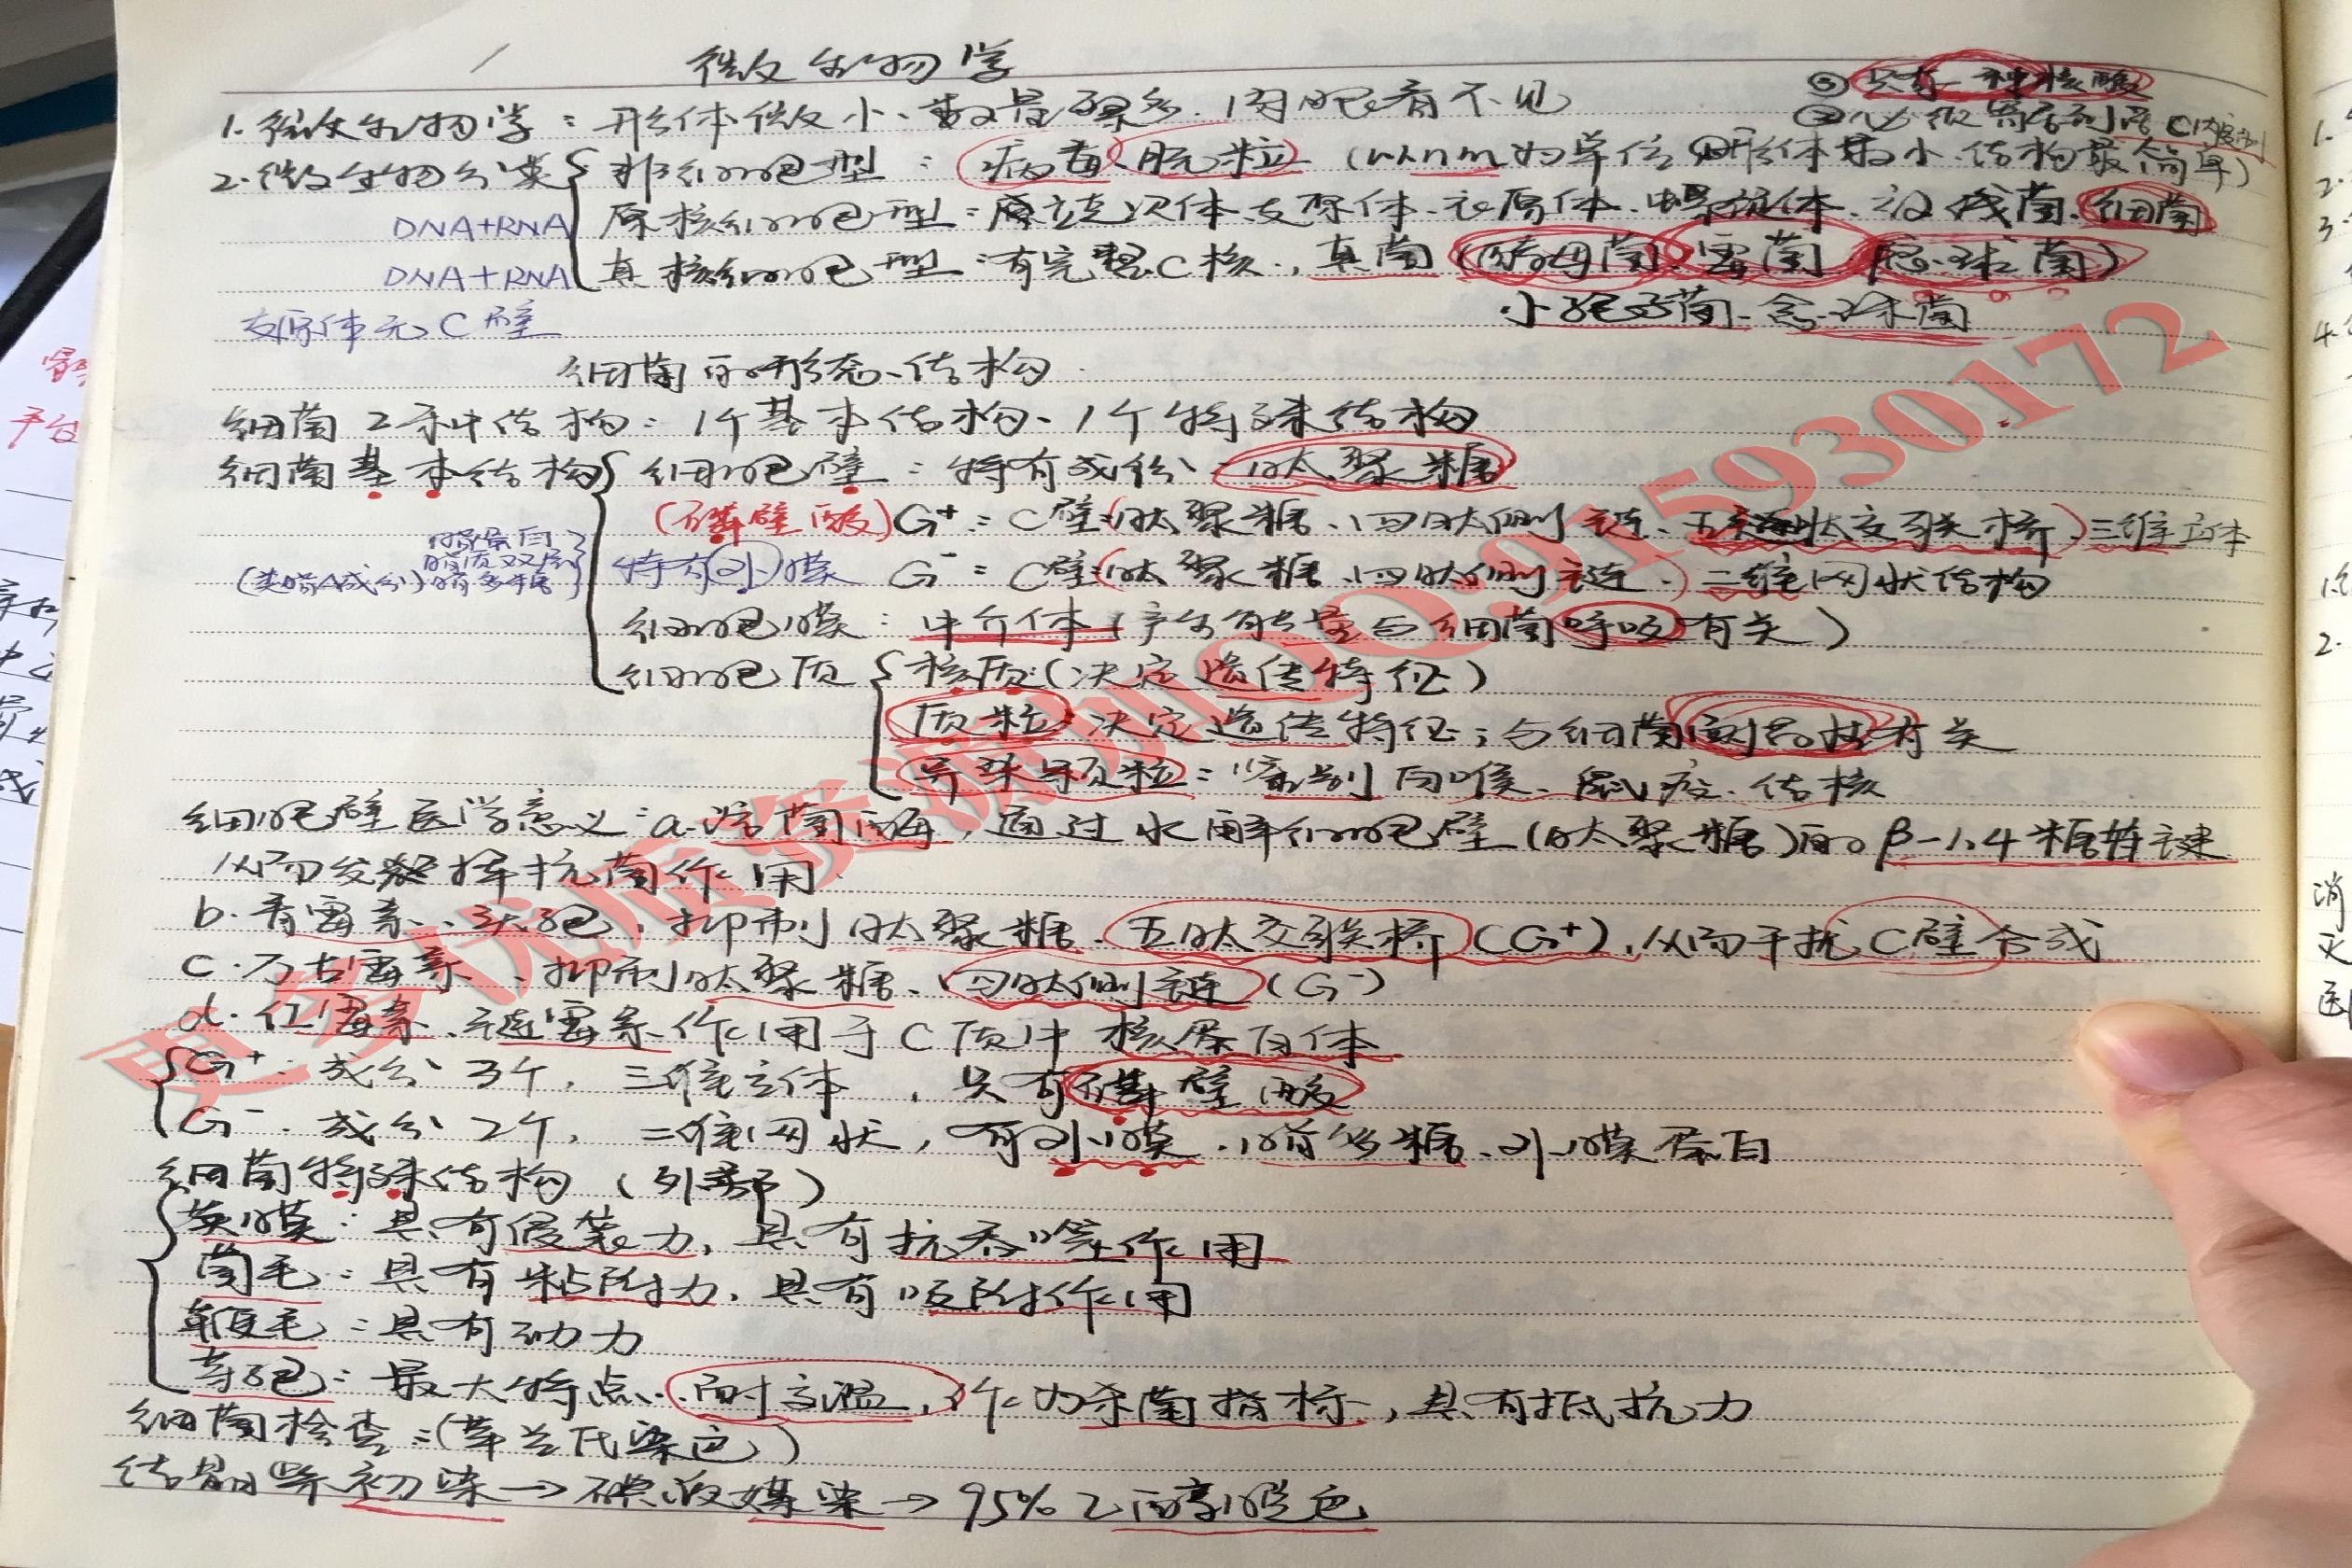 微生物学
② 只有一种核酸
1. 微生物学：形体微小、数量繁多、肉眼看不见
2. 微生物分类 非细胞型：病毒、朊粒（以nm为单位 ①形体最小、结构最简单）
DNA+RNA 原核细胞型：原立克次体、支原体、衣原体、螺旋体、放线菌、细菌
DNA+RNA 真核细胞型：有完整C核，真菌（酵母菌、霉菌、念球菌）
支原体无C壁
小孢子菌、念珠菌
细菌的形态、结构
细菌2种结构：1个基本结构、1个特殊结构
细菌基本结构 细胞壁：特有成份 肽聚糖
（磷壁酸）G⁺：C壁：（肽聚糖、四肽侧链、五肽交联桥）三维立体
特有外膜 G⁻：C壁（肽聚糖、四肽侧链）二维网状结构
脂蛋白
脂质双层
脂多糖
细胞膜：中介体（产生能量与细菌呼吸有关）
细胞质 核质（决定遗传特征）
质粒：决定遗传特征；与细菌耐药性有关
异染颗粒：鉴别白喉、鼠疫、结核
细胞壁医学意义：a. 溶菌酶，通过水解细胞壁（肽聚糖）的β-1,4糖苷键
从而发挥抗菌作用
b. 青霉素、头孢，抑制肽聚糖、五肽交联桥（G⁺），从而干扰C壁合成
c. 万古霉素、抑制肽聚糖、四肽侧链（G⁻）
d. 红霉素、链霉素作用于C质中核蛋白体
G⁺：成分3个，三维立体，只有磷壁酸
G⁻：成分2个，二维网状，有外膜、脂多糖、外膜蛋白
细菌特殊结构（外部）
荚膜：具有侵袭力，具有抗吞噬作用
菌毛：具有粘附力，具有吸附作用
鞭毛：具有动力
芽孢：最大特点：耐高温，作为杀菌指标，具有抵抗力
细菌检查：（革兰氏染色）
结晶紫初染→碘液媒染→95%乙醇脱色
更多优质资源加QQ:915930172